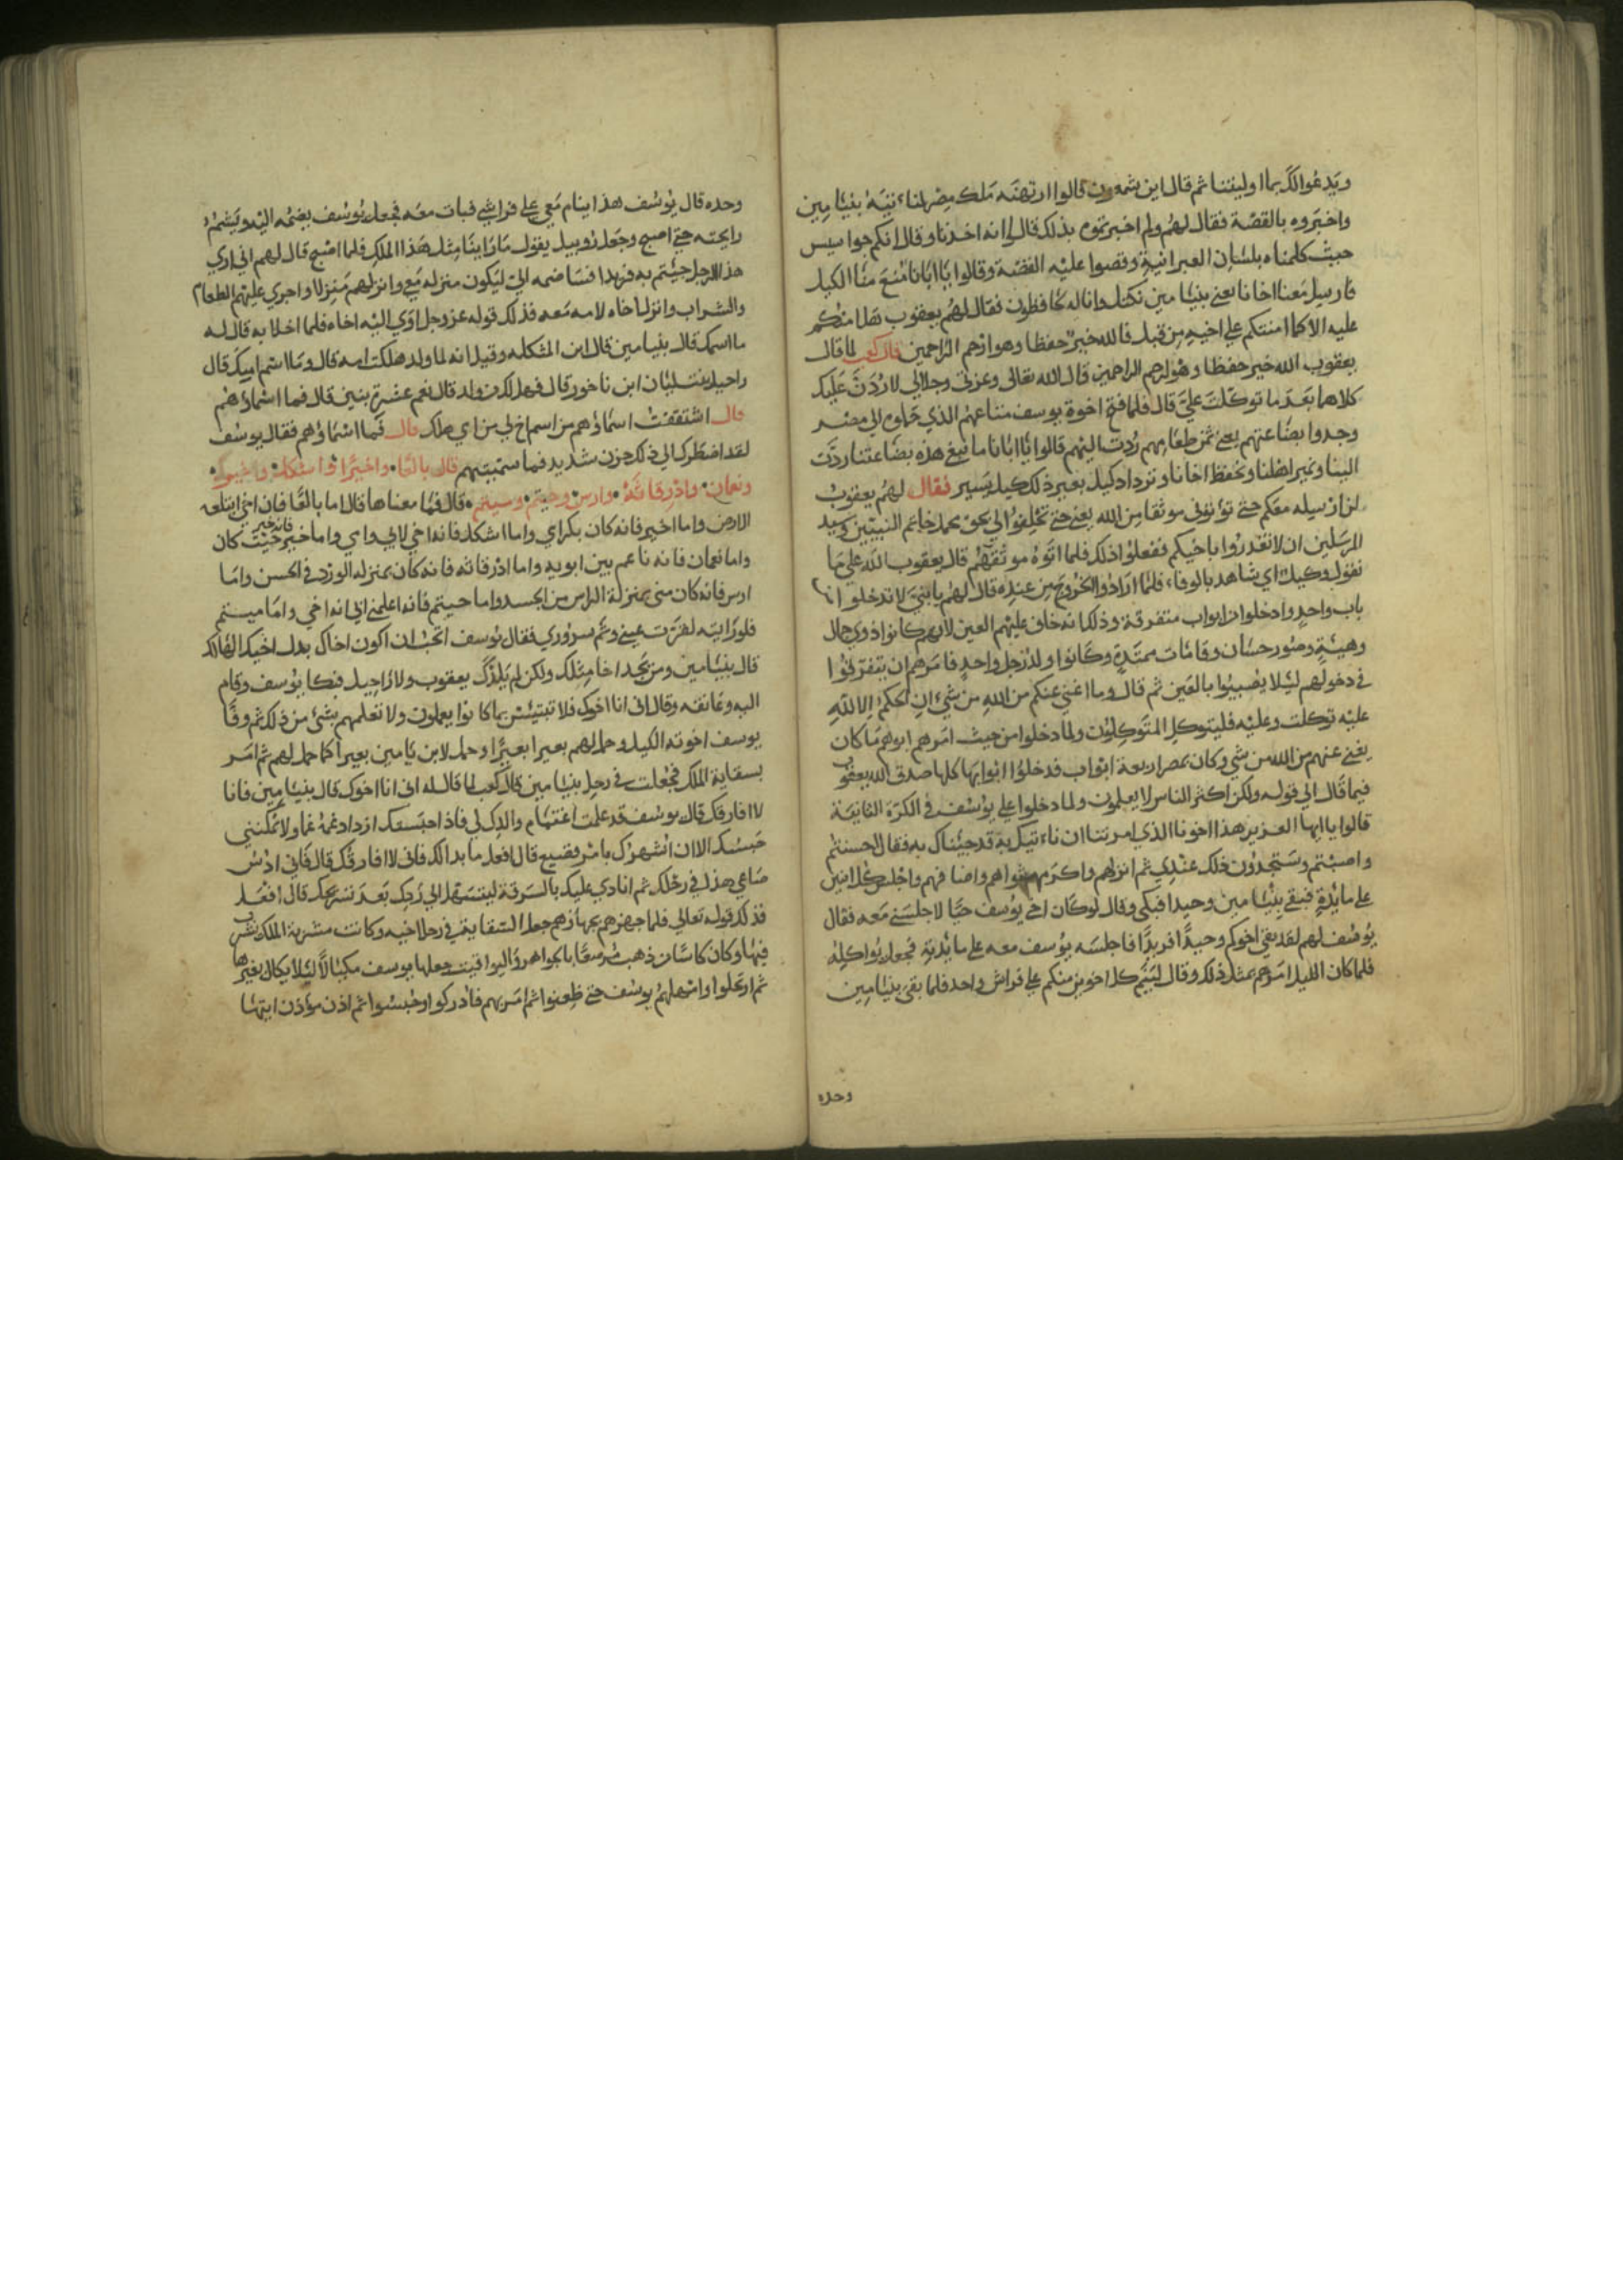 ويدعوا لك بما اوليتنا ثم قال اين شمعون قالوا ارتهنه ملك مصر لناءتيه بنيامين
واخبروه بالقصة فقال لهم ولم اخبرتموه بذلك قالوا انه اخذنا وقال انكم جواسيس
حيث كلمناه بلسان العبرانية وقصوا عليه القصة وقالوا يا ابانا منع منا الكيل
فارسل معنا اخانا يعني بنيامين نكتل وانا له لحافظون فقال لهم يعقوب هل امنكم
عليه الا كما امنتكم على اخيه من قبل فالله خير حفظا وهو ارحم الراحمين قال كعب لما قال
يعقوب الله خير حفظا وهو ارحم الراحمين قال الله تعالى وعزتي وجلالي لاردن عليك
كلاهما بعد ما توكلت علي قال فلما فتح اخوة يوسف متاعهم الذي حملوه الى مصر
وجدوا بضاعتهم يعني ثمن طعامهم ردت اليهم قالوا يا ابانا ما نبغي هذه بضاعتنا ردت
الينا ونمير اهلنا ونحفظ اخانا ونزداد كيل بعير ذلك كيل يسير فقال لهم يعقوب
لن ارسله معكم حتى تؤتوني موثقا من الله يعني حتى تحلفوا لي بحق محمد خاتم النبيين وسيد
المرسلين ان لا تغدروا باخيكم ففعلوا ذلك فلما اتوه موثقهم قال يعقوب الله على ما
نقول وكيل اي شاهد بالوفاء فلما ارادوا الخروج من عنده قال لهم يا بني لا تدخلوا من
باب واحد وادخلوا من ابواب متفرقة وذلك انه خاف عليهم العين لانهم كانوا ذوي جمال
وهيئة وصور حسان وقامات ممتدة وكانوا ولد رجل واحد فامرهم ان يتفرقوا
في دخولهم ليلا يصيبوا بالعين ثم قال وما اغني عنكم من الله من شيء ان الحكم الا لله
عليه توكلت وعليه فليتوكل المتوكلون ولما دخلوا من حيث امرهم ابوهم ما كان
يغني عنهم من الله من شي وكان بمصر اربعة ابواب فدخلوا ابوابها كلها صدق الله يعقوب
فيما قال الى قوله ولكن اكثر الناس لا يعلمون ولما دخلوا على يوسف في الكرة الثانية
قالوا يا ايها العزيز هذا اخونا الذي امرتنا ان ناءتيك به قد جيناك به فقال احسنتم
واصبتم وستجدون ذلك عندي ثم انزلهم واكرم مثواهم واضافهم واجلس كل اثنين
على مائدة فبقي بنيامين وحيدا فبكى وقال لو كان اخي يوسف حيا لاجلسني معه فقال
يوسف لهم لقد بقي اخوكم وحيدا فريدا فاجلسه يوسف معه على مائدته فجعل يواكله
فلما كان الليل امرهم بمثل ذلك وقال لينم كل اخوين منكم على فراش واحد فلما بقي بنيامين
وحده
وحده قال يوسف هذا ينام معي على فراشي فبات معه فجعل يوسف يضمه اليه ويشم
رايحته حتى اصبح وجعل روبيل يقول ما راينا مثل هذا الملك فلما اصبح قال لهم اني ارى
هذا الرجل جيتم به فريدا فساضمه الي ليكون منزله معي وانزلهم منزلا واجرى عليهم الطعام
والشراب وانزل اخاه لامه معه فذلك قوله عز وجل اوى اليه اخاه فلما اخلا به قال له
ما اسمك قال بنيامين قال ابن المشكله وقيل انه لما ولد هلكت امه قال وما اسم امك قال
راحيل بنت ليان ابن ناخور قال فهل لك من ولد قال نعم عشرة بنين قال فما اسماؤهم
قال اشتققت اسماؤهم من اسم اخ لي من امي هلك قال فما اسماؤهم فقال يوسف
لقد اضطرك الى ذلك حزن شديد فما سميتهم قال بالعا واخيرا واشكل واخيو
ونعمان واذرفاثه وارس وحيتم وميتم قال فما معناها قال اما بالعا فان اخي ابتلعه
الارض واما اخير فانه كان بكر امي واما اشكل فانه اخي لابي وامي واما خير فانه خير حيث كان
واما نعمان فانه ناعم بين ابويه واما اذرفاثه فانه كان بمنزلة الورد في الحسن واما
ارس فانه كان مني بمنزلة الراس من الجسد واما حيتم فانه اعلمني ابي انه اخي واما ميتم
فلو رايته لقرت عيني وتم سروري فقال يوسف اتحب ان اكون اخاك بدل اخيك الهالك
قال بنيامين ومن يجد اخا مثلك ولكن لم يلدك يعقوب ولا راحيل فبكا يوسف وقام
اليه وعانقه وقال اني انا اخوك فلا تبتيئس بما كانوا يعملون ولا تعلمهم بشئ من ذلك ثم وفا
يوسف اخوته الكيل وحمل لهم بعيرا بعيرا وحمل لابن يامين بعيرا كما حمل لهم ثم امر
بسقاية الملك فجعلت في رحل بنيامين قال كعب لما قال له اني انا اخوك قال بنيامين فانا
لا افارقك قال يوسف قد علمت اغتمام والدك لي فاذا احبستك ازداد غمه غما ولا يمكنني
حبسك الا ان اشهرك بامر فضيع قال افعل ما بدا لك فاني لا افارقك قال فاني ادس
صاعي هذا في رحلك ثم انادي عليك بالسرقة ليتسهل لي ردك بعد تسريحك قال افعل
فذلك قوله تعالى فلما جهزهم بجهازهم جعل السقاية في رحل اخيه وكانت مشربة الملك يشرب
فيها وكان كاسا من ذهب مرصعا بالجواهر واليواقيت جعلها يوسف مكيالا ليلا يكال بغيرها
ثم ارتحلوا وامهلهم يوسف حتى ظعنوا ثم امر بهم فادركوا وحبسوا ثم اذن مؤذن ايتها